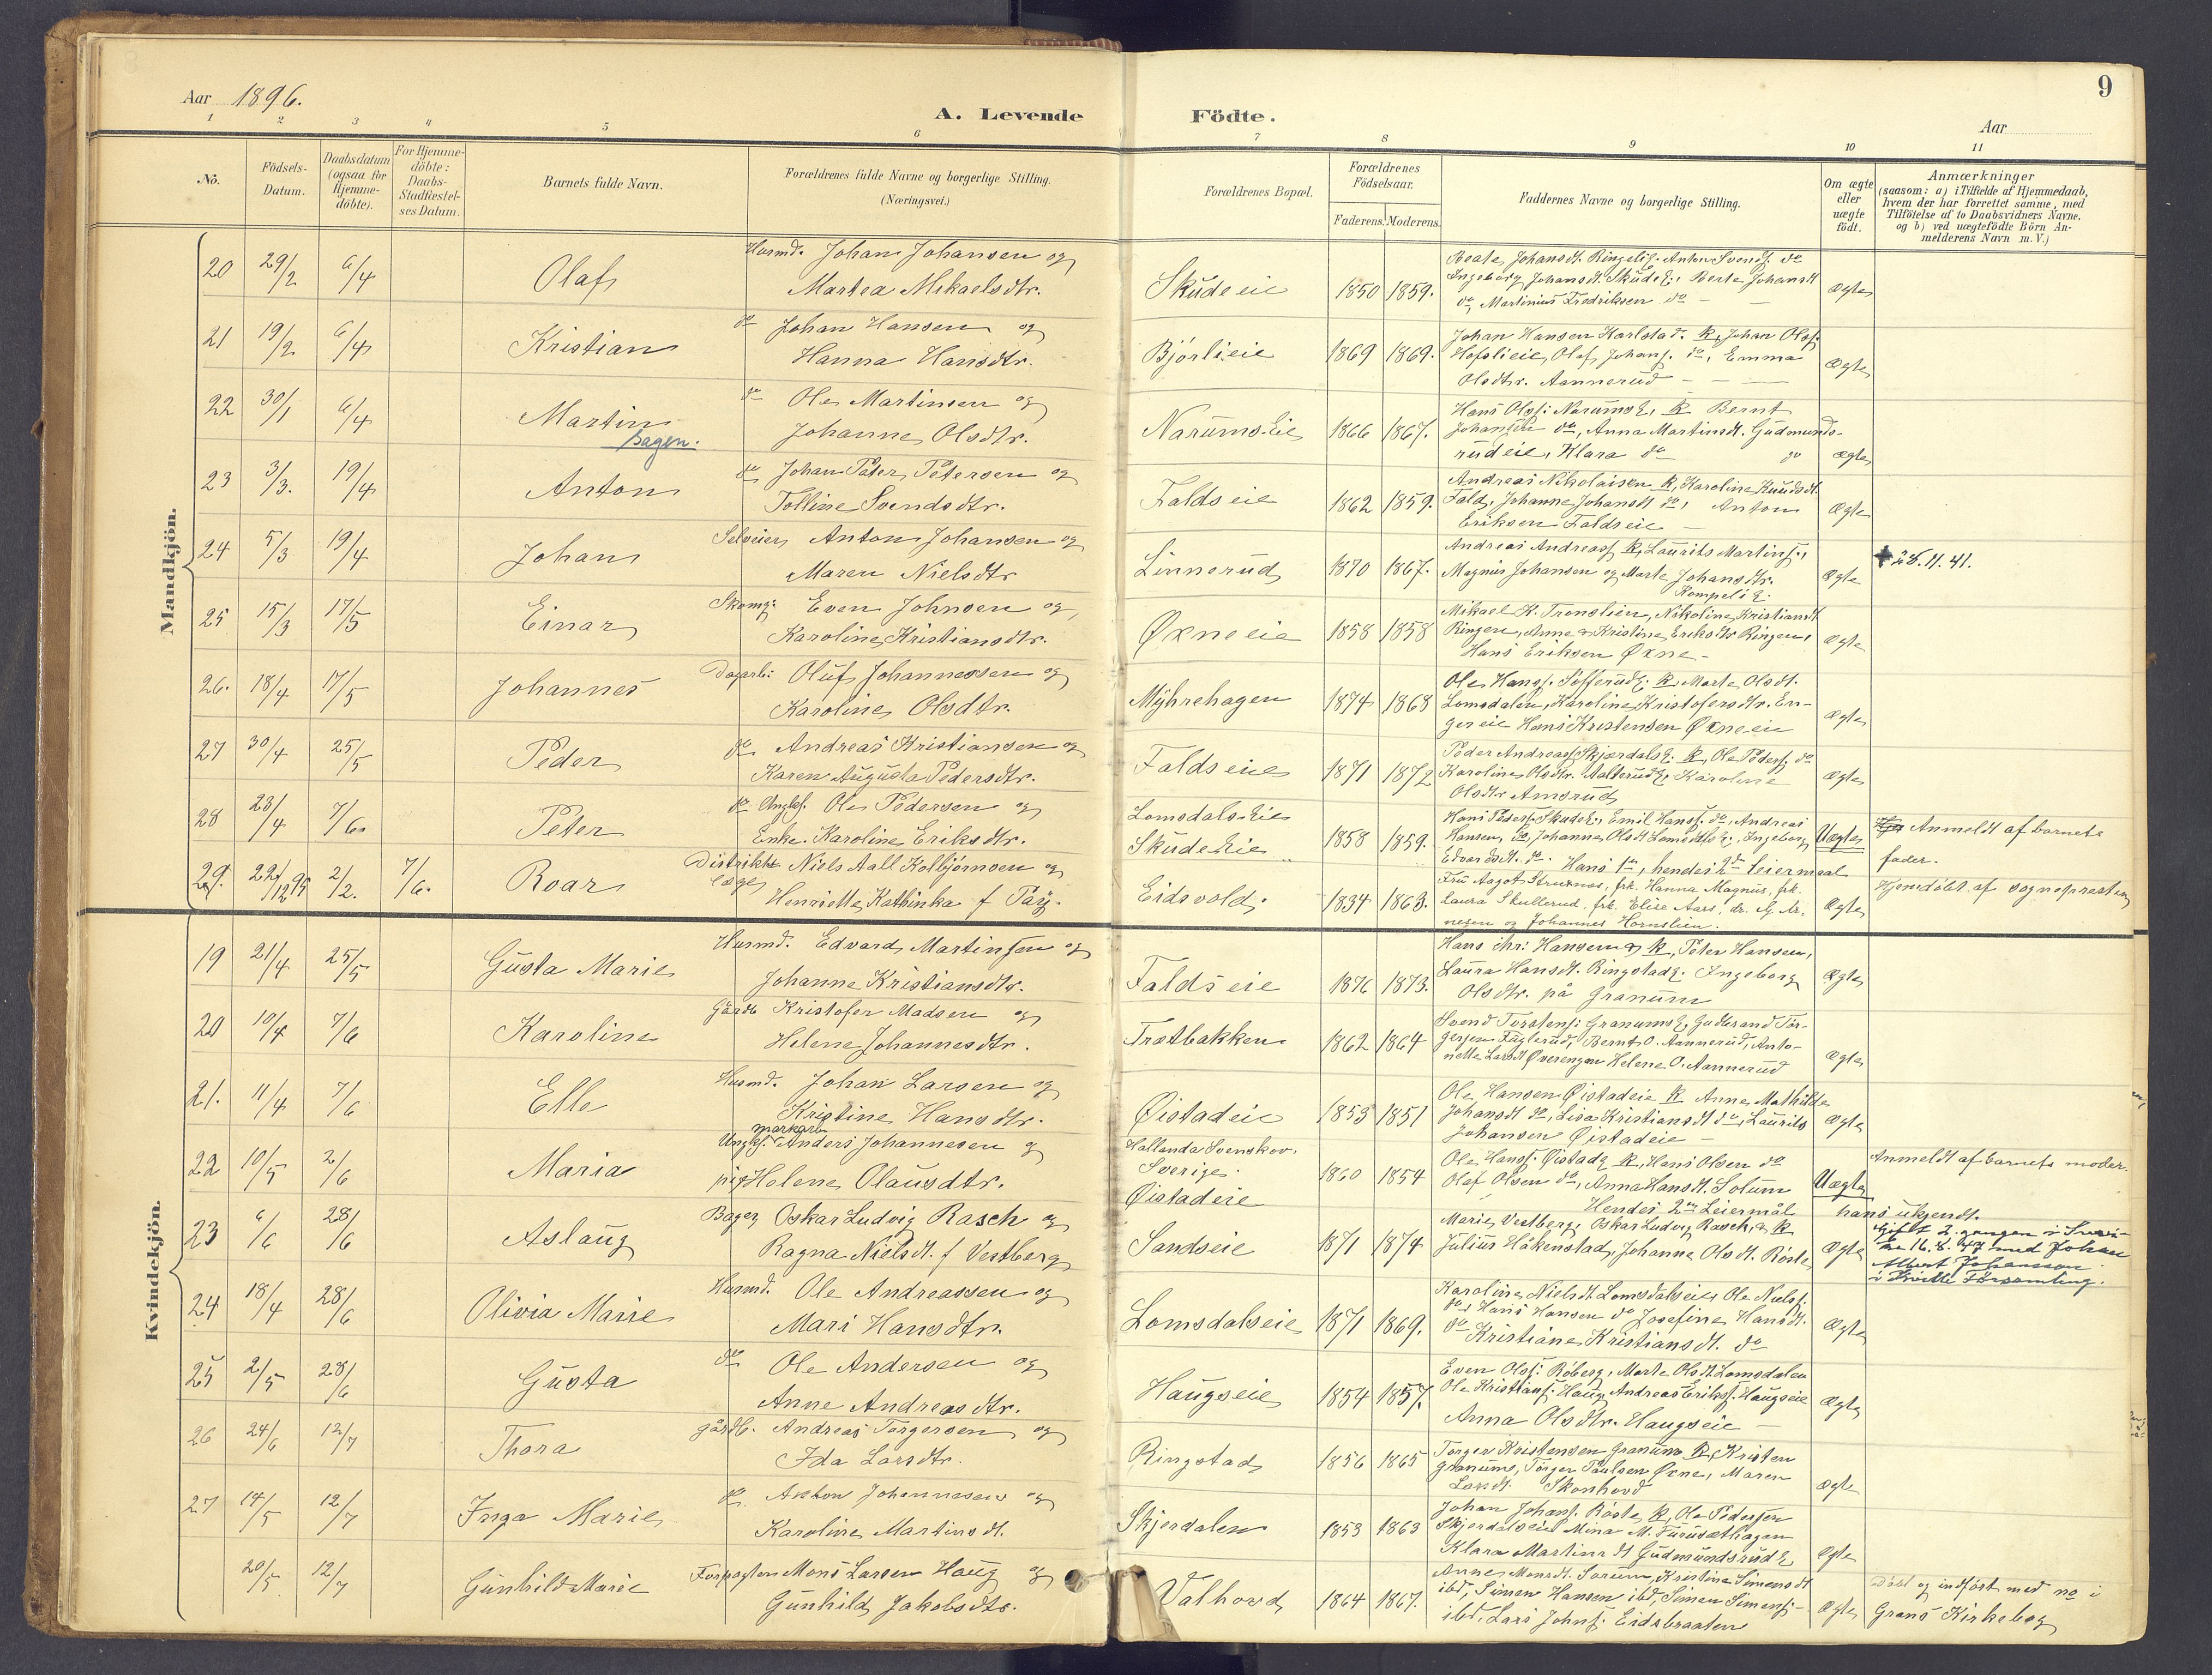 Aar 1896.
A. Levende Födte.
9
Aar
1 2 3 4 5 6 7 8 9 10 11
No.
Födsels-
Datum.
Daabsdatum
(ogsaa for
Hjemme-
döbte).
For Hjemme-
döbte:
Daabs-
Stadfæstel-
ses Datum.
Barnets fulde Navn.
Forældrenes fulde Navne og borgerlige Stilling.
(Næringsvei.)
Forældrenes Bopæl.
Forældrenes
Födselsaar.
Faderens. Moderens.
Faddernes Navne og borgerlige Stilling.
Om ægte
eller
uægte
födt.
Anmærkninger
(saasom: a) i Tilfælde af Hjemmedaab,
hvem der har forrettet samme, med
Tilföielse af to Daabsvidners Navne.
og b) ved uægtefödte Börn An-
melderens Navn m. V.)
Mandkjön.
20 29/2 6/4 Olaf Husmd. Johan Johansen og
Martea Mikaelsdtr.
Skudeeie 1850 1859.
Beate Johansdt. RingeliE. Anton Svends. do
Ingeborg Johansdt. SkudeE. Berte Johansdt
do, Martinius Fredriksen do
Ægte
21 19/2 6/4 Kristian do Johan Hansen og
Hanna Hansdtr.
Bjørlieie 1869 1869.
Johan Hansen Karlstad. k, Johan Olsf.
Hofslieie, Olaf Johans. do, Emma
Olsdtr. Aannerud
Ægte
22 30/1 6/4 Martin do Ole Martinsen og
Bagen.
Johanne Olsdtr.
Narums Eie 1866 1867.
Hans Olsf: NarumsE, k Bernt
Johansen do, Anna Martinsdt. Gudmunds-
rudeie, Klara do do
ægte
23 3/3. 19/4 Anton do Johan Peter Petersen og
Tolline Svendsdtr.
Faldseie 1862 1859.
Andreas Nikolaisen k, Karoline Knudsdt.
Fald, Johanne Johansdt do, Anton
Eriksen Faldseie
Ægte
24 5/3 19/4 Johan Selveier Anton Johansen og
Maren Nielsdtr
Linnerud 1870 1867.
Andreas Andreasf k, Laurits Martinf.,
Magnus Johansen og Marte Johansdtr.
KompeliE.
Ægte
✝ 28.11.41.
25 15/3 17/5 Einar Skomg: Even Johnsen og,
Karoline Kristiansdtr.
Øxneeie 1858 1858
Mikael K. Tronslien, Nikoline Kristiansdt
Ringen, Anne & Kristine Eriksdtr Ringen,
Hans Eriksen Øxne
Ægte
26. 18/4 17/5 Johannes Dagarb: Oluf Johannessen og
Karoline Olsdtr.
Myhrehagen 1874 1868
Ole Hansf. SofferudE: k. Marte Olsdt.
Lomsdalen, Karoline Kristofersdtr. En-
gereie Hans Kristensen Øxneeie
Ægte
27 30/4 25/5 Peder do Andreas Kristiansen og
Karen Augusta Pedersdtr.
Faldseie 1871 1872
Peder Andreasf SkjærdalsE: k, Ole Pedersf. do
Karoline Olsdtr. AalterudE, Karoline
Olsdtr Amsrud
Ægte
28 23/4 7/6 Peter do Ungkf. Ole Pedersen og
Enke. Karoline Eriksdtr.
Lomsdals Eie
Skude Eie 1858 1859.
Hans Pedersf. SkudeE, Emil Hansf. do, Andreas
Hansen, do, Johanne Olsdt LomsdalsE, Ingeborg
Edvardsdt. do. Hans 1ste, hendes 2det Leiermaal
Uægte
Anmeldt af barnets
fader.
29. 22/12 95 2/2. 7/6. Roar Distrikts Niels Aall Kolbjörnsen og
læge
Henriette Kathinka f Pay.
Eidsvold. 1834 1863.
Fru Aagot Struknes, frk. Hanna Magnus, frk.
Laura Skullerud, frk. Elise Aars, dr. Aj. Ar-
nesen og Johannes Hornslien.
Ægte
Hjemdöbt af sognepresten
Kvindekjön.
19 21/4 25/5 Gusta Marie Husmd. Edvard Martinsen og
Johanne Kristiansdtr.
Faldseie 1876 1873.
Hans Chr: Hansen og k, Peter Hansen,
Laura Hansdt. RingstadE. Ingeborg
Olsdtr. på Granum
Ægte
20 10/4 7/6 Karoline Gårdb Kristofer Madsen og
Helene Johannesdtr.
Trætbakken 1862 1864
Svend Torstens: GranumsE, Gulbrand Tor-
gersen Fuglerud, Bernt O. Aannerud, Anto-
nette Larsdt Øverengen Helene O. Aannerud
Ægte
21. 11/4 7/6 Elle Husmd. Johan Larsen og
Kristine Hansdtr.
Øistadeie 1853 1851
Ole Hansen Øistadeie k Anne Mathilde
Johansdt do, Lisa Kristiansdt do, Laurits
Johansen Øistadeie
Ægte
22 10/5 2/6 Maria Ungkf. Anders Johannesen og
pige Helene Olausdtr.
Hallanda Svenskov.
Sverige.
Øistadeie 1860 1854
Ole Hansf: ØistadE k, Hans Olsen do
Olaf Olsen do, Anna Hansdt. Solum
Hendes 2det Leiermål
Uægte
Anmeldt af barnets moder.
hans ukjendt.
23 6/6 28/6 Aslaug Bager Oskar Ludvig Rasch og
Ragna Nielsdt. f Vestberg
Sandseie 1871 1874
Marie Vestberg, Oskar Ludvig Rasch, k
Julius Håkenstad, Johanne Olsdt. Røste
Ægte
Gift 2. gangen i
16.8. med Johan
Albert Johansson
i Församling.
24 18/4 28/6 Olivia Marie Husmd. Ole Andreassen og
Mari Hansdtr.
Lomsdalseie 1871 1869.
Karoline Nielsdt. Lomsdalseie Ole Nielsf.
do, Hans Hansen do Josefine Hansdt.
do Kristiane Kristiansdt. do
Ægte
25 2/5 28/6 Gusta do Ole Andersen og
Anne Andreasdtr.
Haugseie 1854 1857.
Even Olsf: Røberg, Marte Olsdt. Lomsdalen
Ole Kristiansf. Haug, Andreas Eriksf. Haugseie
Anna Olsdtr. Haugseie
Ægte
26 24/6 12/7 Thora gårdb. Andreas Torgersen og
Ida Larsdtr.
Ringstad 1856 1865
Torger Kristensen Granum k, Kristen
Granum, Torger Paulsen Øxne, Maren
Larsdt. Skonhovd
Ægte
27 14/5 12/7 Inga Marie do. Anton Johannesen og
Karoline Martinsdt.
Skjerdalen 1853 1863
Johan Johansf. Røste k, Ole Pedersen
Skjerdalseie Mina M. Furusethagen
Klara Martinsdt GudmundsrudE
Ægte
20/5 12/7 Gunhild Marie Forpagter Mons Larsen Haug og
Gunhild Jakobsdtr.
Valhovd 1864 1867.
Anne Monsdt. Sørum, Kristine Simensdt
ibd, Simen Hansen ibd, Simen Simensf
ibd, Lars Johnf. Eidsbraaten
Ægte
Døbt og indført med no i
Grans Kirkebog